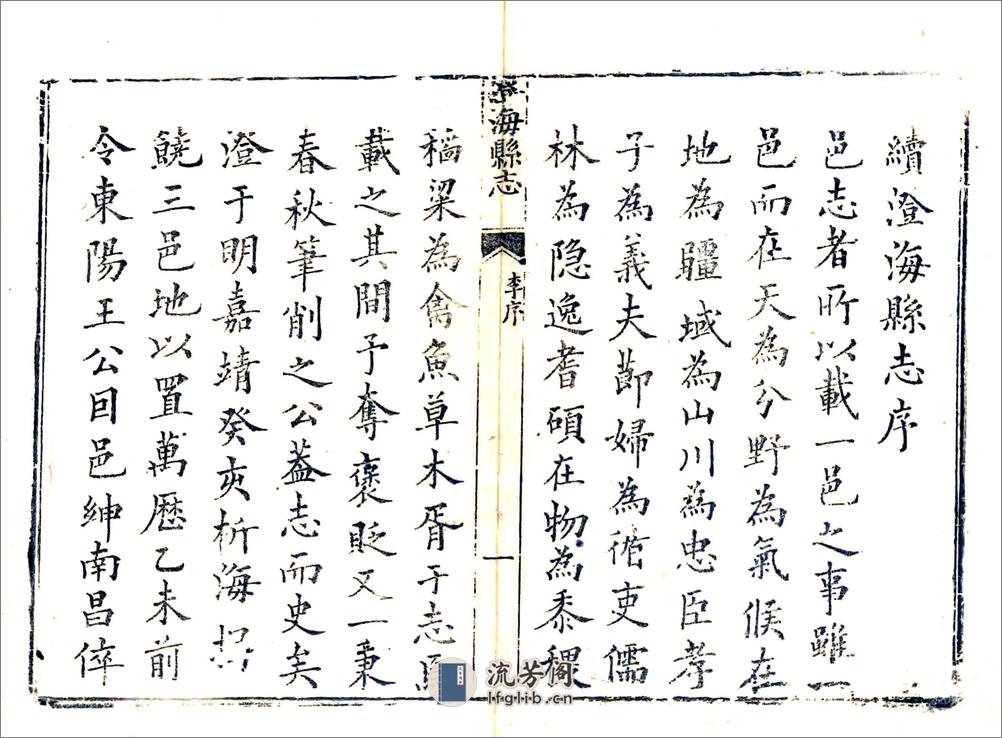 續澄海縣志序
邑志者所以載一邑之事雖一
邑而在天為分野為氣候在
地為疆域為山川為忠臣孝
子為義夫節婦為循吏儒
林為隐逸耆碩在物為黍稷
澄海縣志
李序
一
稻粱為禽魚草木胥于志焉
載之其間予奪褒貶又一秉
春秋筆削之公葢志而史矣
澄于明嘉靖癸亥析海揭
饒三邑地以置萬歷乙未前
令東陽王公囙邑紳南昌倅
流芳阁
lfglib.cn